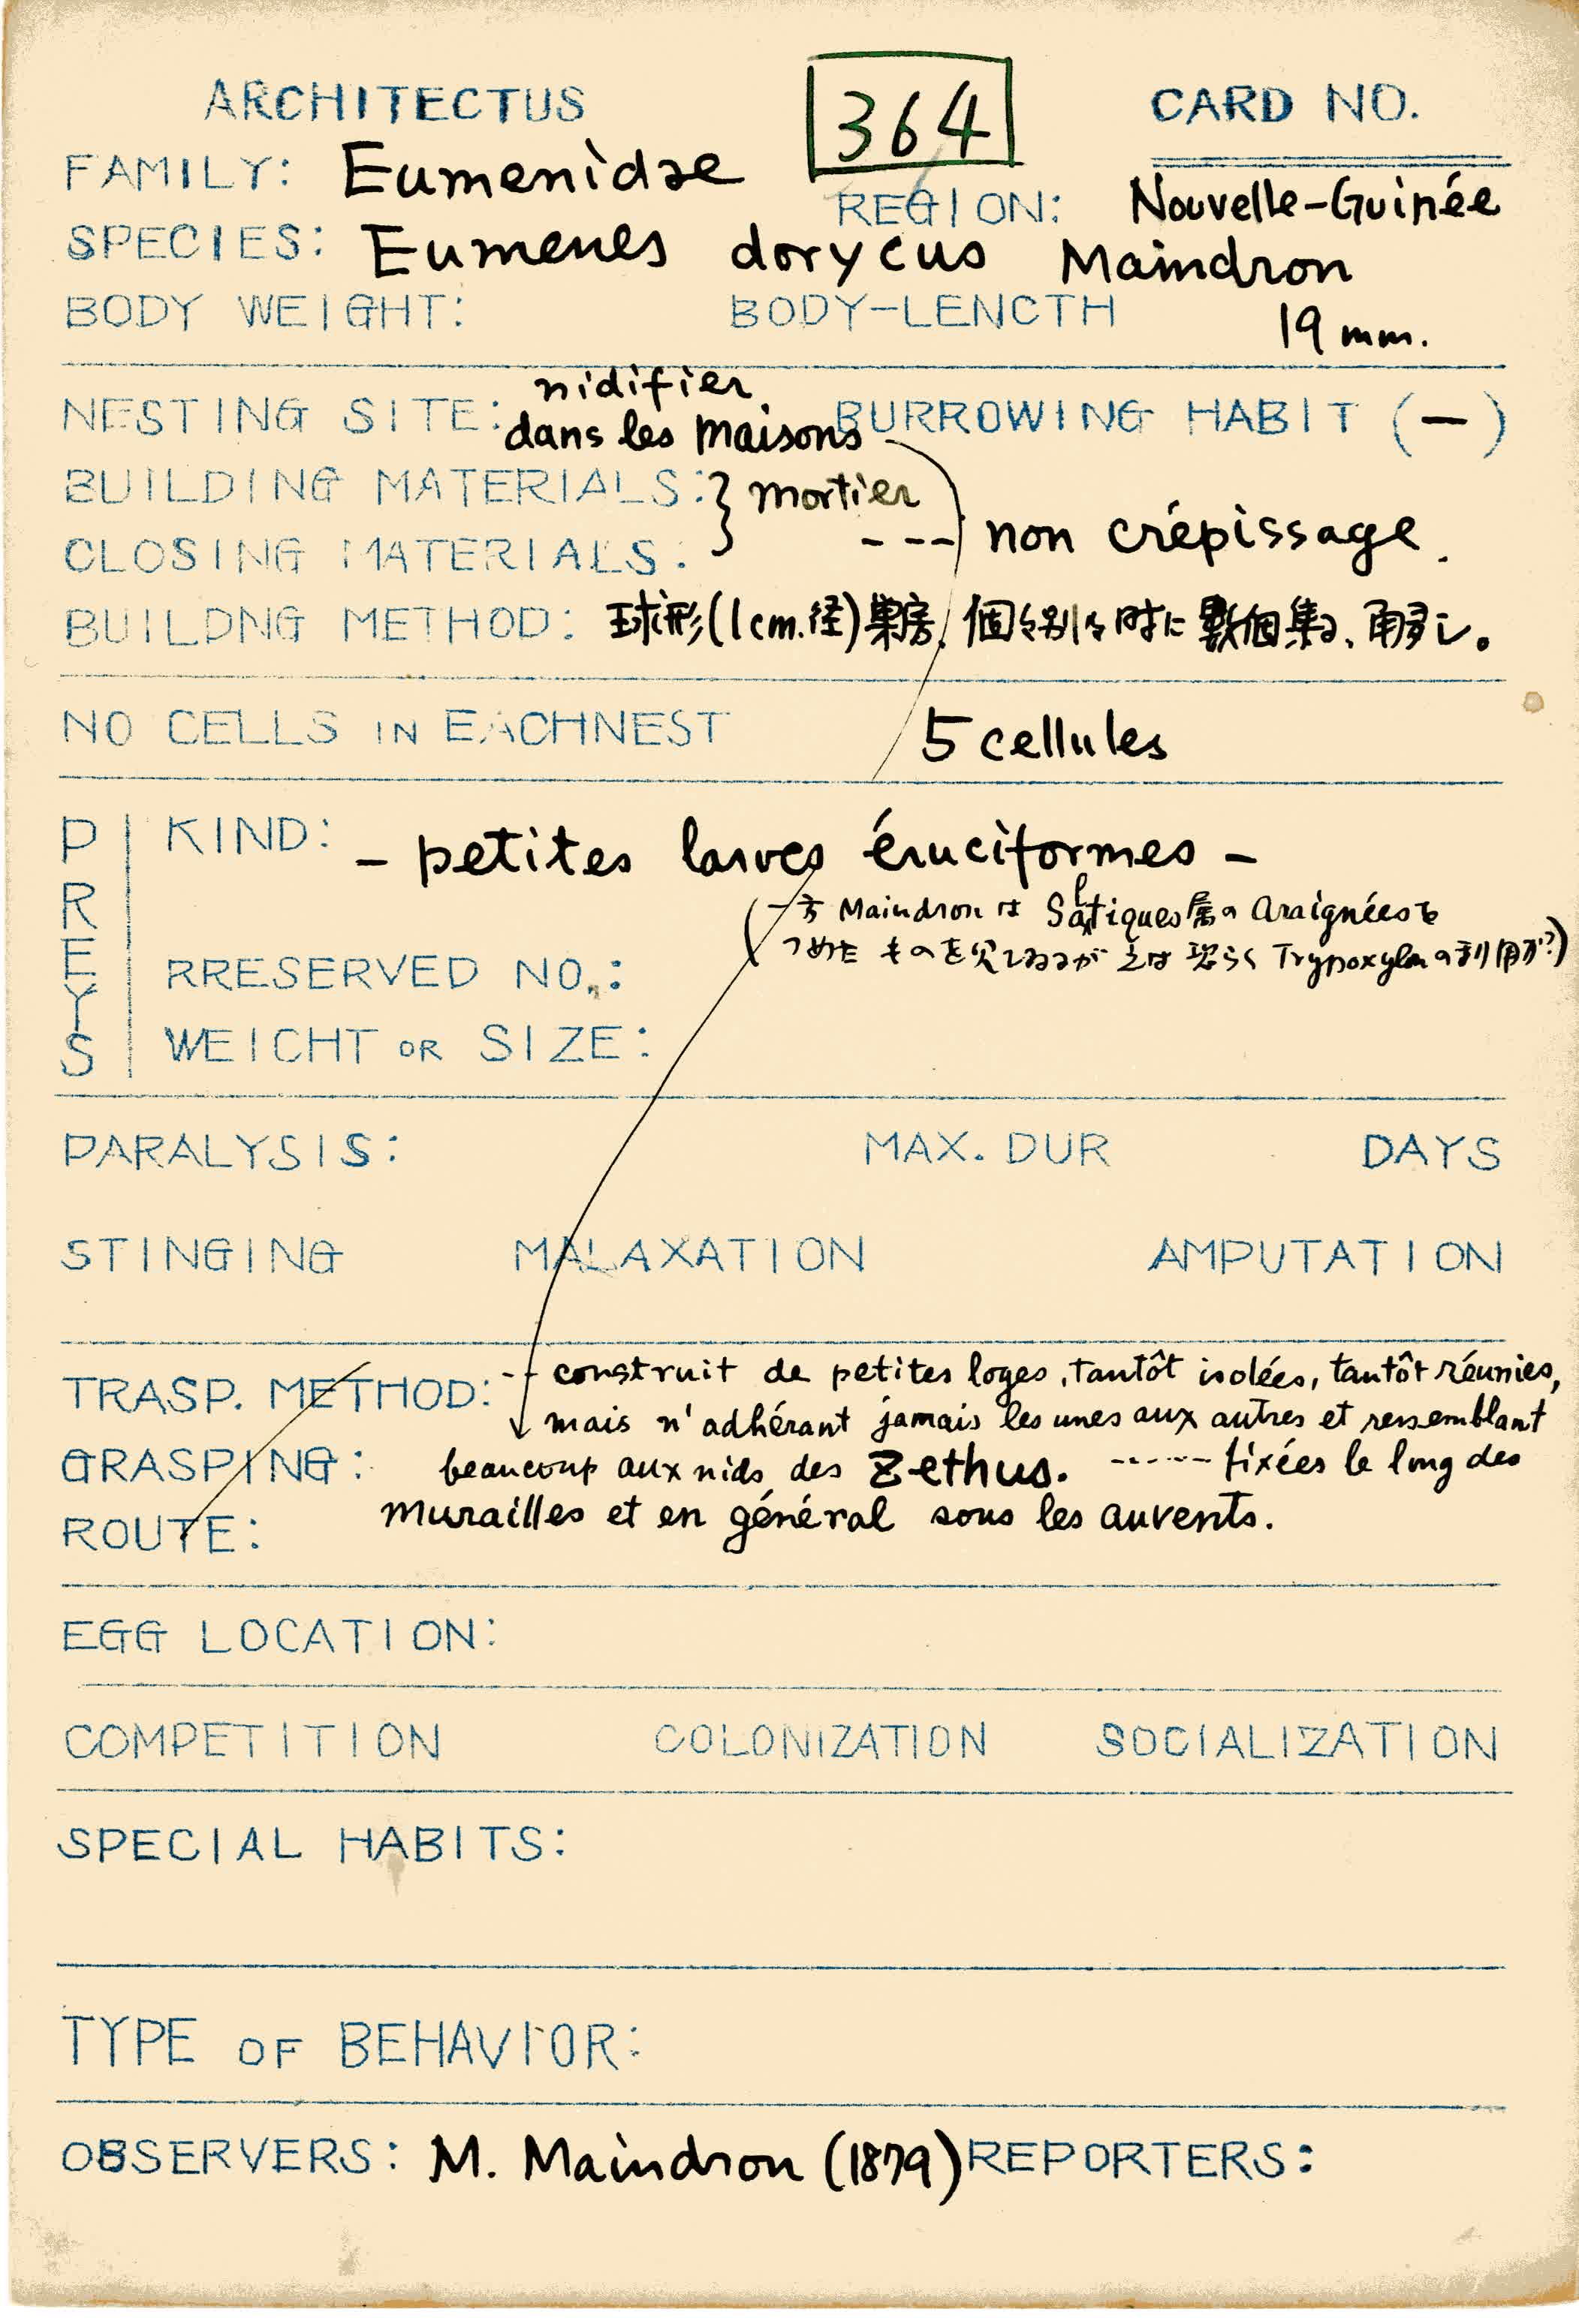 ARCHITECTUS 364 CARD NO.
FAMILY: Eumenidae
REGION: Nouvelle-Guinée
SPECIES: Eumenes dorycus Maindron
BODY WEIGHT: BODY-LENCTH 19 mm.
nidifier
NESTING SITE: dans les maisons BURROWING HABIT (−)
BUILDING MATERIALS: } mortier
CLOSING MATERIALS. --- non crépissage.
BUILDNG METHOD: 球形(1cm.径)巣房, 個々別々時に数個集る、
NO CELLS IN EACHNEST 5 cellules
PREYS
KIND: - petites larves éruciformes -
(一方 Maindron は Saltiques属の Araignéesを
RRESERVED NO.: つめたものを Trypoxylonの利用か?)
WEICHT OR SIZE:
PARALYSIS: MAX. DUR DAYS
STINGING MALAXATION AMPUTATION
TRASP. METHOD: -- construit de petites loges, tantôt isolées, tantôt réunies,
mais n'adhérant jamais les unes aux autres et ressemblant
GRASPING: beaucoup aux nids des Zethus. ------ fixées le long des
ROUTE: murailles et en général sous les auvents.
EGG LOCATION:
COMPETITION COLONIZATION SOCIALIZATION
SPECIAL HABITS:
TYPE OF BEHAVIOR:
OBSERVERS: M. Maindron (1879) REPORTERS: